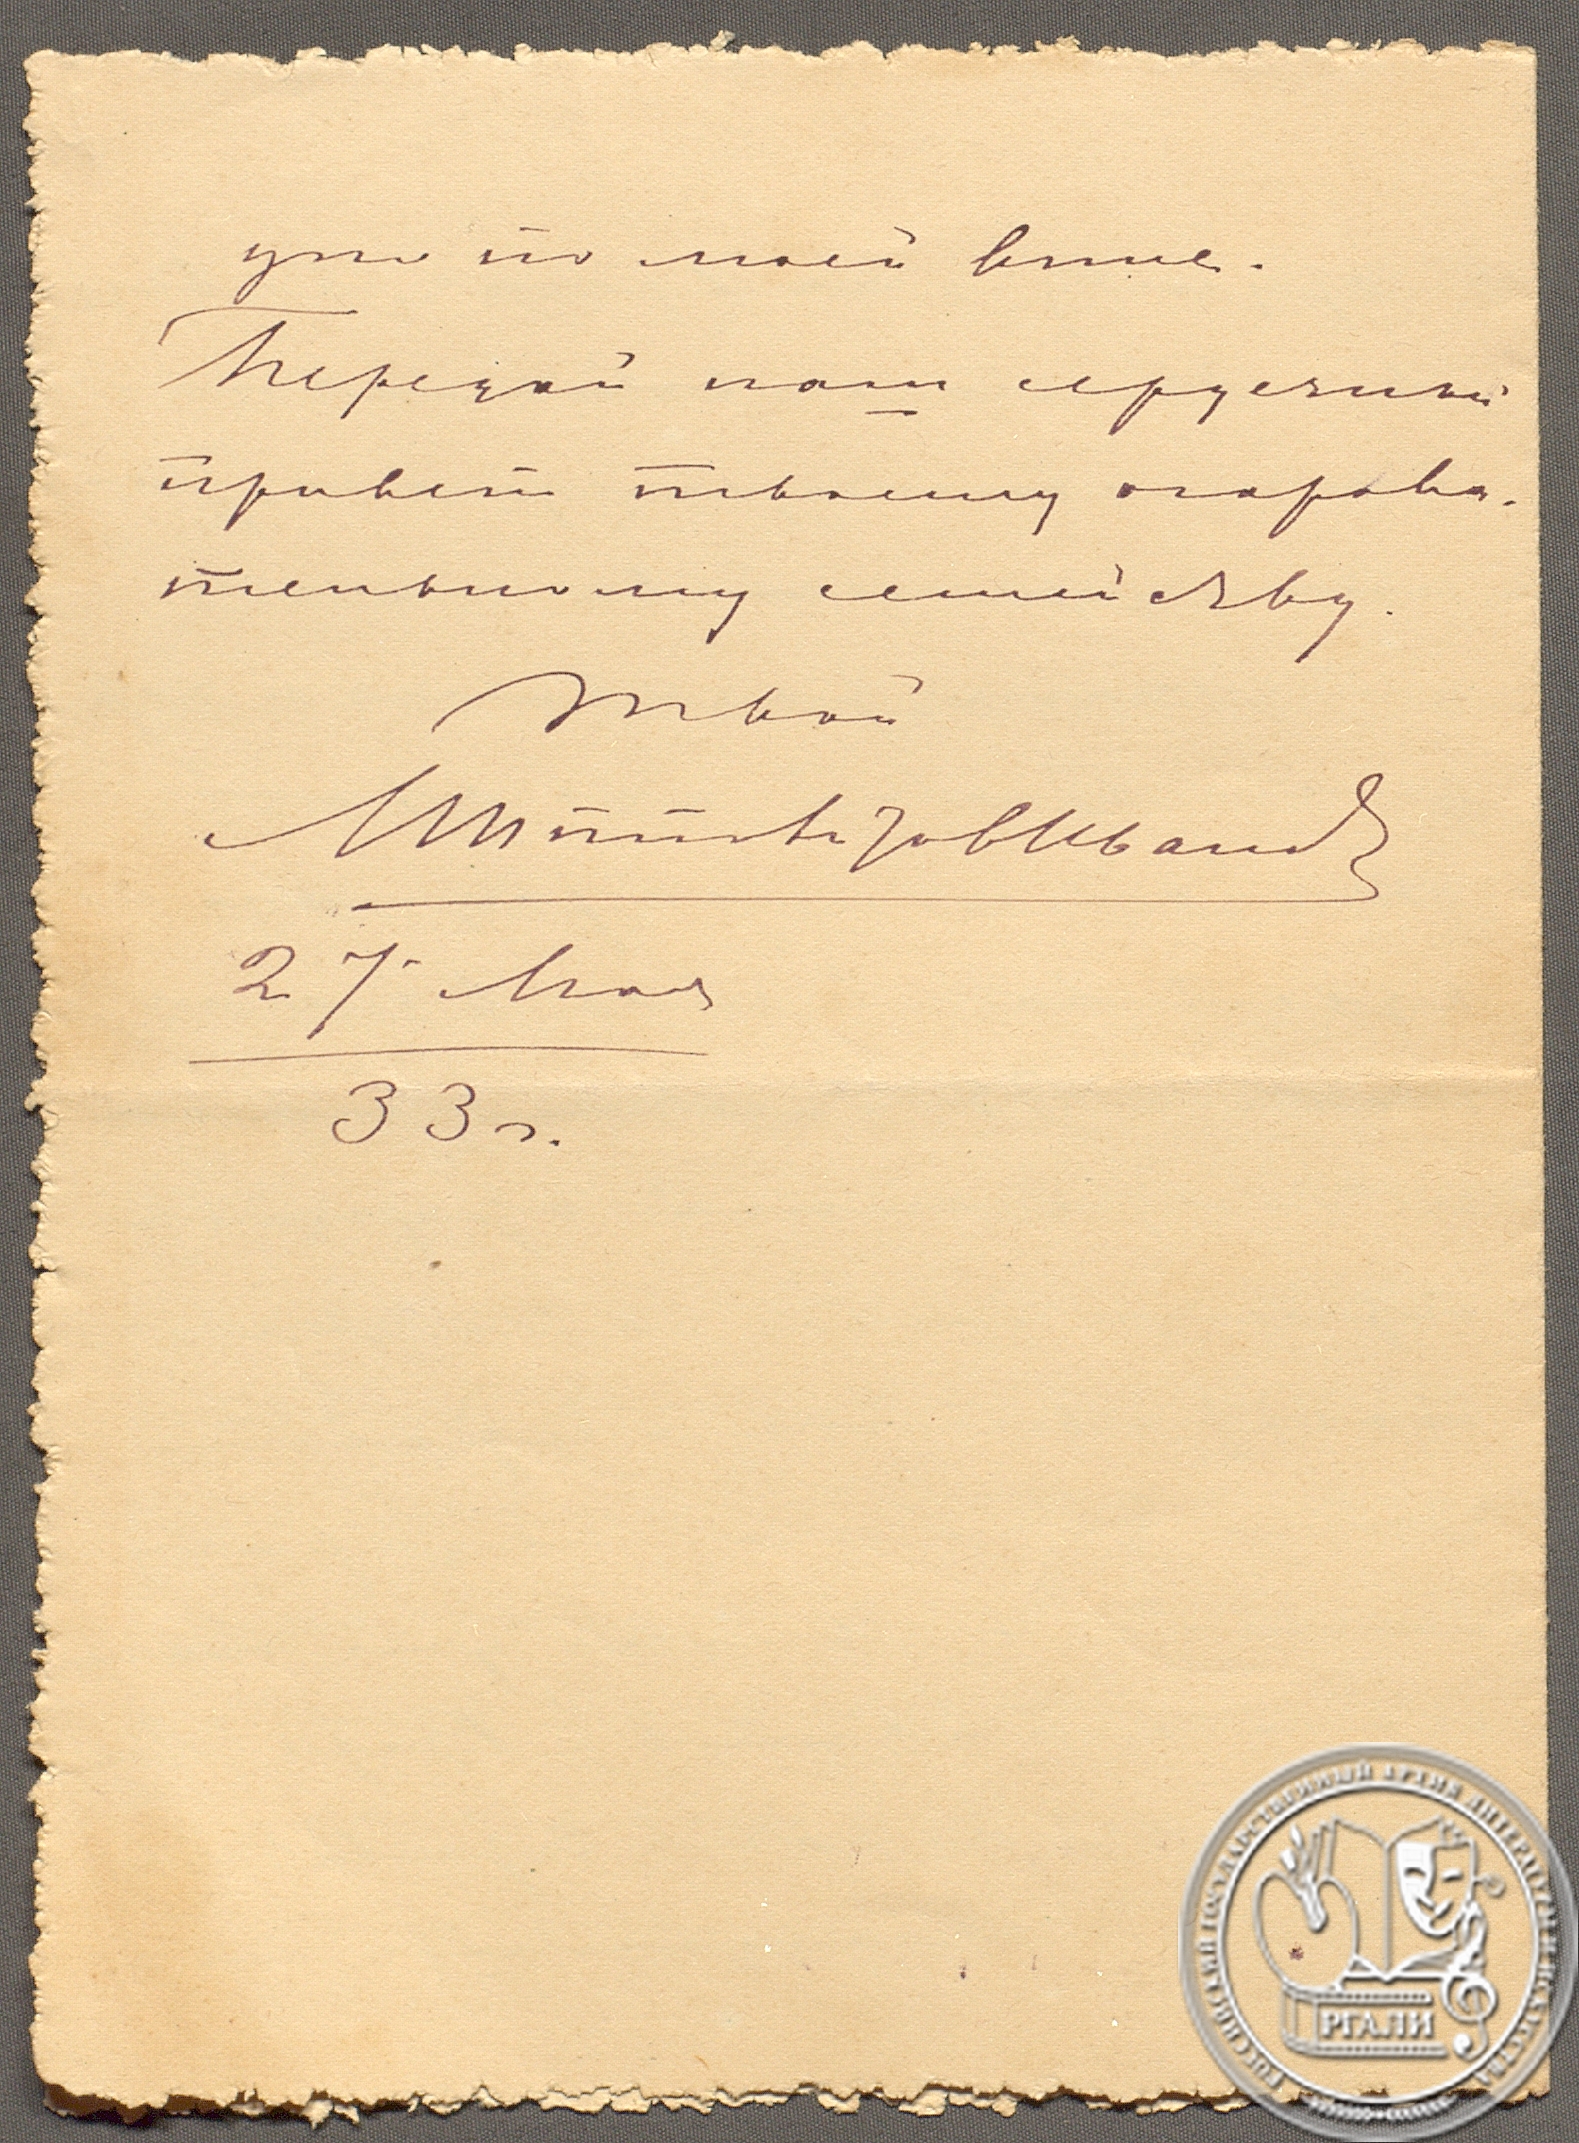 уж по моей вине.
Передай наш сердечный
привет твоему очарова-
тельному семейству.
Твой
МИпполитовИванов
27 Мая
33 г.
РОССИЙСКИЙ ГОСУДАРСТВЕННЫЙ АРХИВ ЛИТЕРАТУРЫ И ИСКУССТВА
РГАЛИ